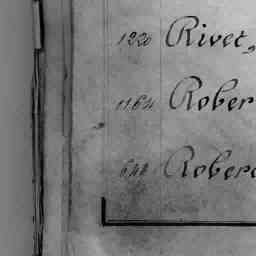 1220 Rivet,
1164 Rober
648 Robero